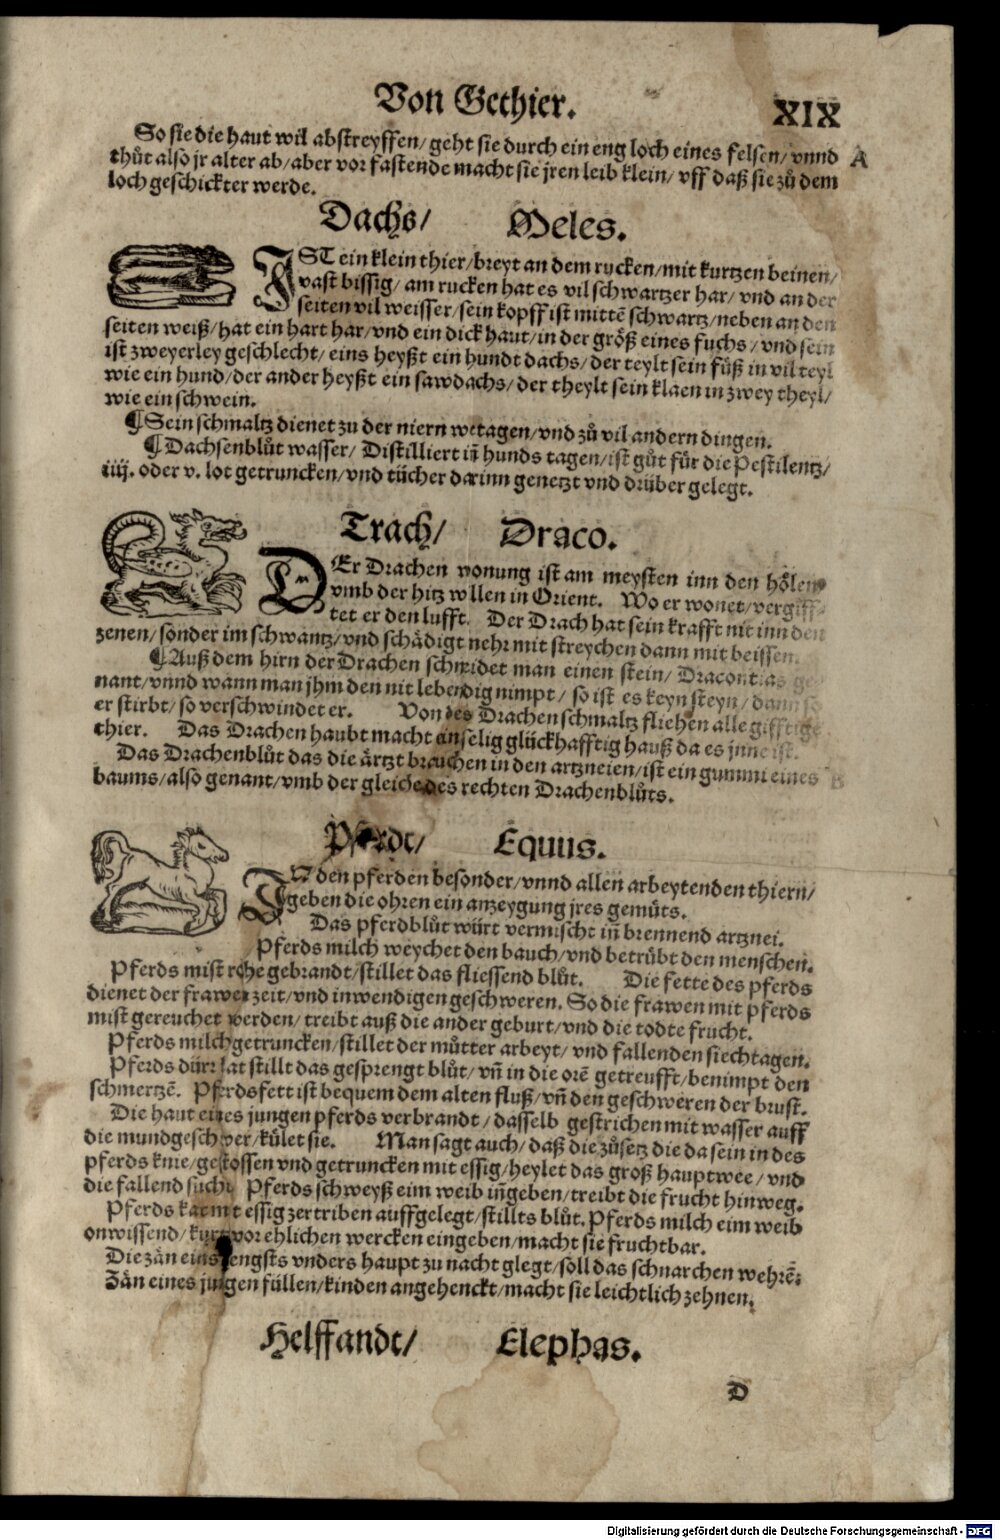 Von Gethier.
XIX
So sie die haut wil abstreyffen/ geht sie durch ein eng loch eines felsen/ vnnd
A
thůt also jr alter ab/ aber vor fastende macht sie jren leib klein/ vff daß sie zů dem
loch geschickter werde.
Dachs/ Meles.
IST ein klein thier/ breyt an dem rucken/ mit kurtzen beinen/
vast bissig/ am rucken hat es vil schwartzer har/ vnd an der
seiten vil weisser/ sein kopff ist mittē schwartz/ neben an den
seiten weiß/ hat ein hart har/ vnd ein dick haut/ in der größ eines fuchs/ vnd sein
ist zweyerley geschlecht/ eins heyßt ein hundt dachs/ der teylt sein füß in vil teyl
wie ein hund/ der ander heyßt ein sawdachs/ der theylt sein klaen in zwey theyl/
wie ein schwein.
¶ Sein schmaltz dienet zu der niern wetagen/ vnd zů vil andern dingen.
¶ Dachsenblůt wasser/ Distilliert iñ hunds tagen/ ist gůt für die Pestilentz/
iiij. oder v. lot getruncken/ vnd tücher darinn genetzt vnd drüber gelegt.
Trach/ Draco.
DEr Drachen wonung ist am meysten inn den hölen
vmb der hitz wllen in Orient. Wo er wonet/ vergiff-
tet er den lufft. Der Drach hat sein krafft nit inn den
zenen/ sonder im schwantz/ vnd schädigt nehr mit streychen dann mit beissen.
¶ Auß dem hirn der Drachen schneidet man einen stein/ Dracontias
nant/ vnnd wann man jhm den nit lebendig nimpt/ so ist es keyn steyn/ dann so
er stirbt/ so verschwindet er. Von des Drachen schmaltz fliehen alle gifftige
thier. Das Drachen haubt macht anselig glückhafftig hauß da es jnne ist.
Das Drachenblůt das die ärtzt brauchen in den artzneien/ ist ein gummi eines
B
baums/ also genant/ vmb der gleiche des rechten Drachenblůts.
Pferdt/ Equus.
IN den pferden besonder/ vnnd allen arbeytenden thiern/
geben die ohren ein anzeygung jres gemüts.
Das pferdblůt würt vermischt iñ brennend artznei.
Pferds milch weychet den bauch/ vnd betrübt den menschen.
Pferds mist rohe gebrandt/ stillet das fliessend blůt. Die fette des pferds
dienet der frawen zeit/ vnd inwendigen geschweren. So die frawen mit pferds
mist gereuchet werden/ treibt auß die ander geburt/ vnd die todte frucht.
Pferds milch getruncken/ stillet der můtter arbeyt/ vnd fallenden siechtagen.
Pferds dürr kat stillt das gesprengt blůt/ vñ in die orē getreufft/ benimpt den
schmertzē. Pferdsfett ist bequem dem alten fluß/ vñ den geschweren der brust.
Die haut eines jungen pferds verbrandt/ dasselb gestrichen mit wasser auff
die mundgeschwer/ kület sie. Man sagt auch/ daß die zůsetz die da sein in des
pferds knie/ gestossen vnd getruncken mit essig/ heylet das groß hauptwee/ vnd
die fallend sucht. Pferds schweyß eim weib iñgeben/ treibt die frucht hinweg.
Pferds kat mit essig zertriben auffgelegt/ stillts blůt. Pferds milch eim weib
onwissend/ kurtz vor ehlichen wercken eingeben/ macht sie fruchtbar.
Die zän eins hengsts vnders haupt zu nacht glegt/ soll das schnarchen wehrē:
Zän eines jungen füllen/ kinden angehenckt/ macht sie leichtlich zehnen.
Helffandt/ Elephas.
D
Digitalisierung gefördert durch die Deutsche Forschungsgemeinschaft - DFG